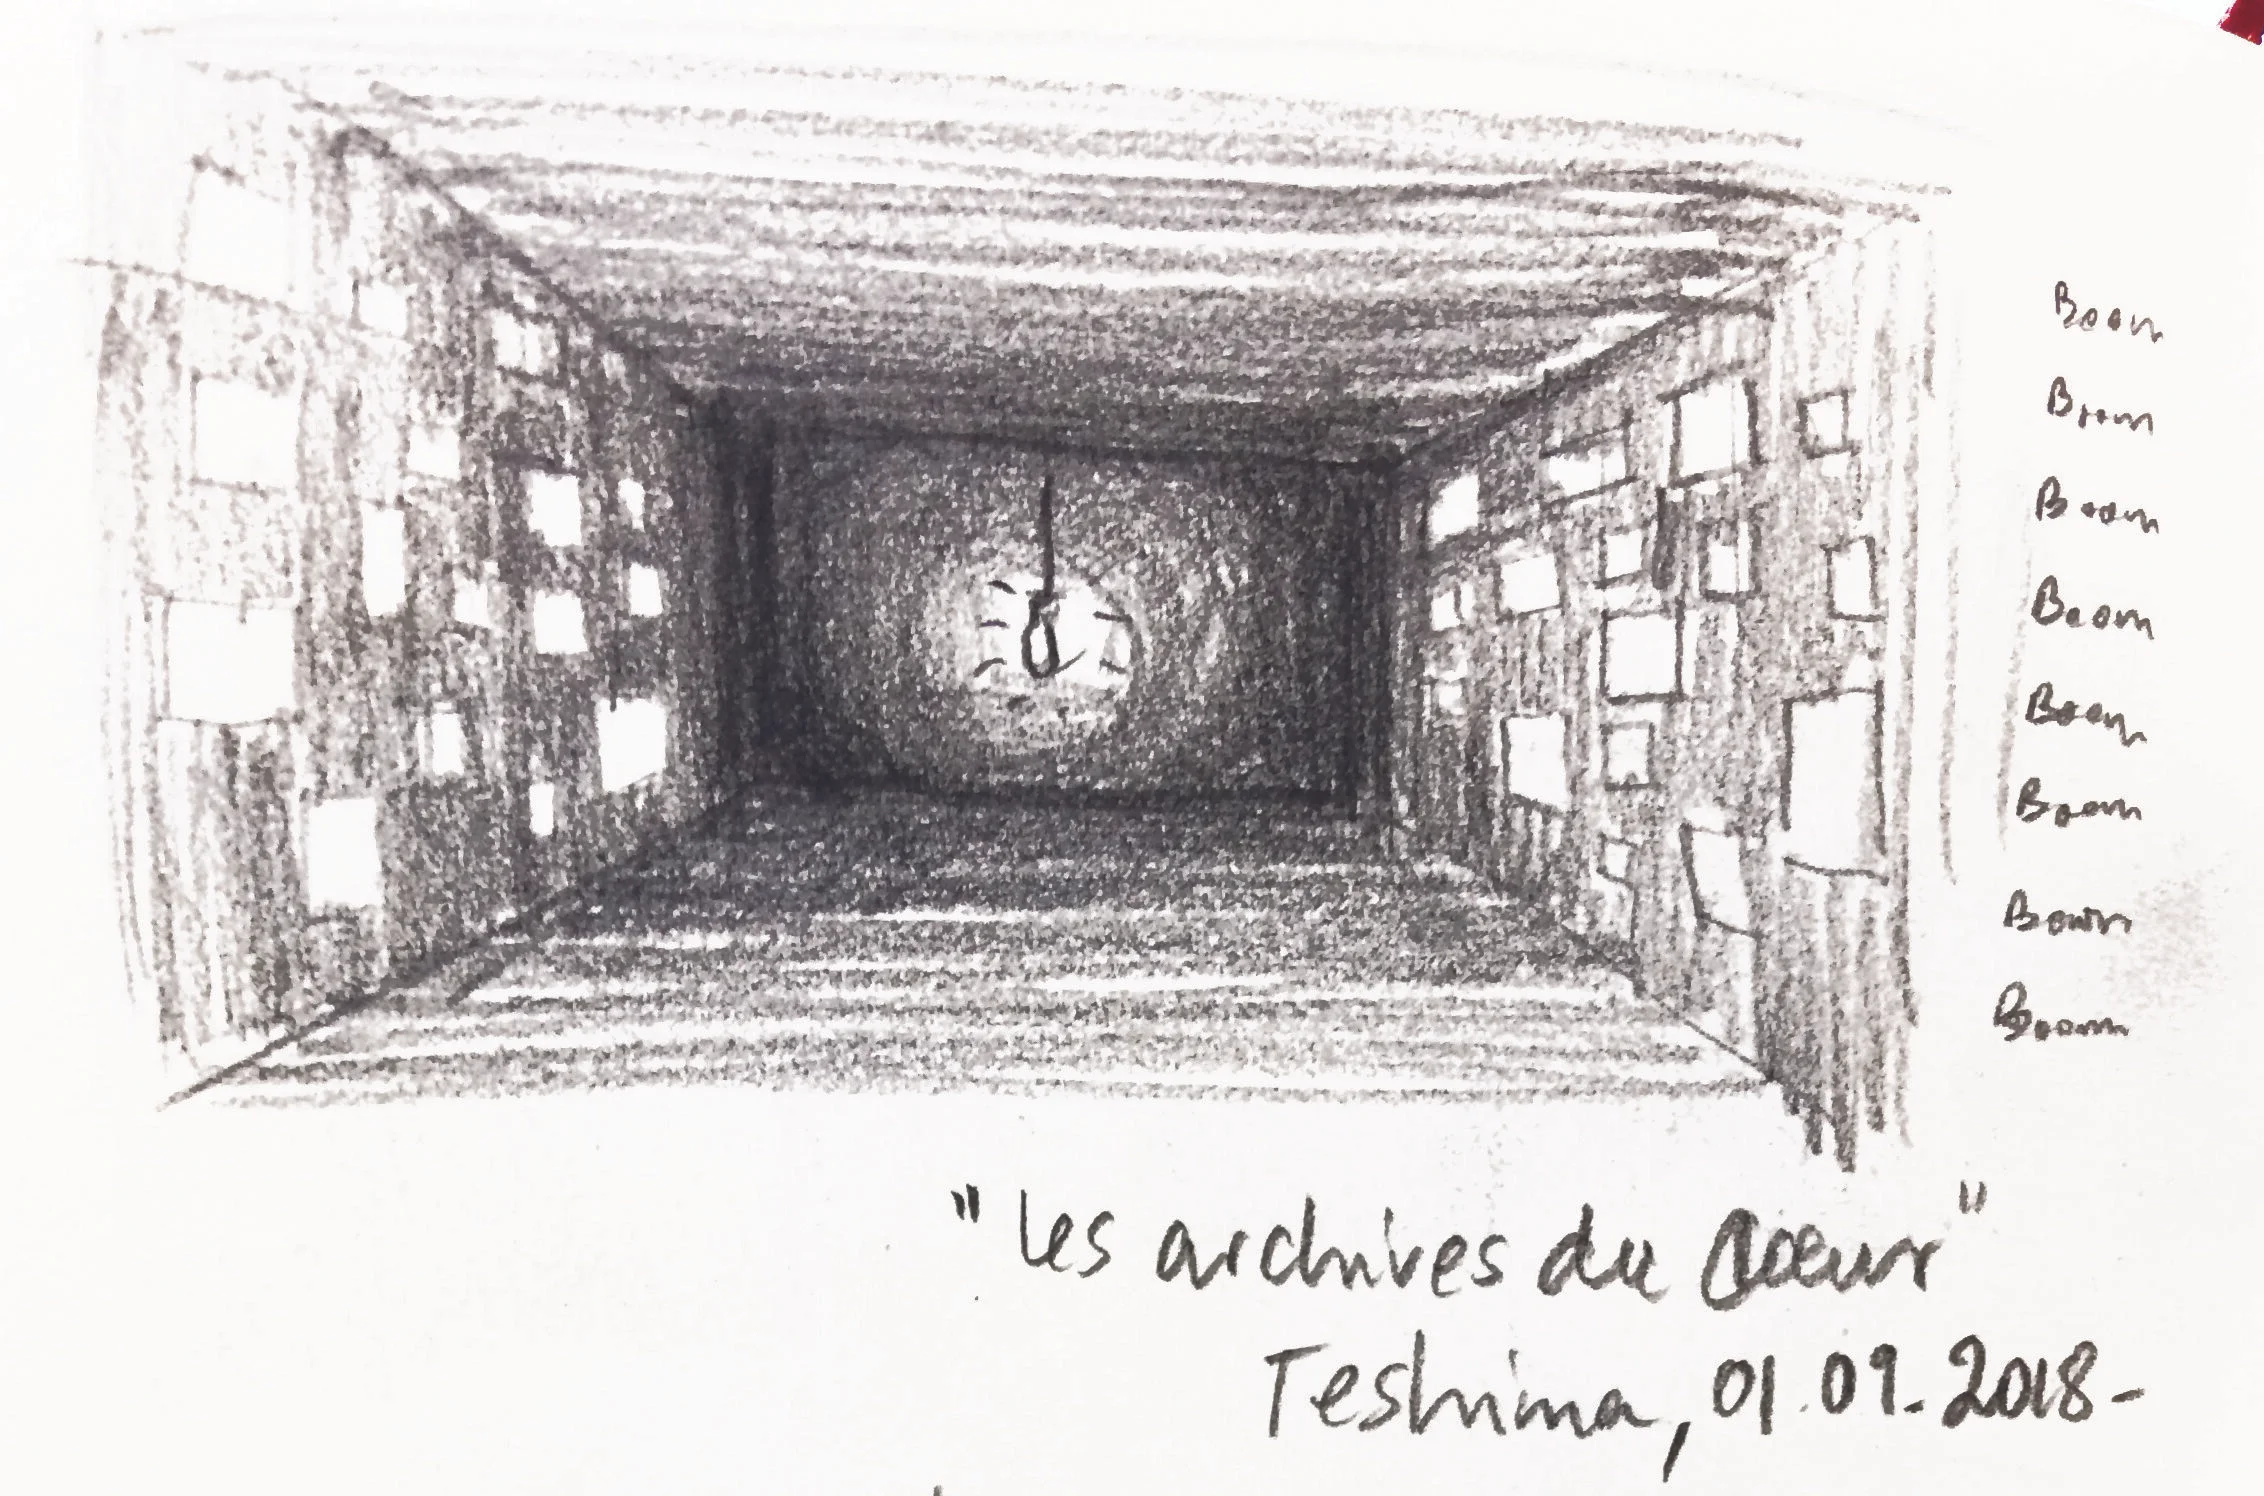 Boom
Boom
Boom
Boom
Boom
Boom
Boom
Boomm
"Les archives du Cœur"
Teshima, 01.09.2018-